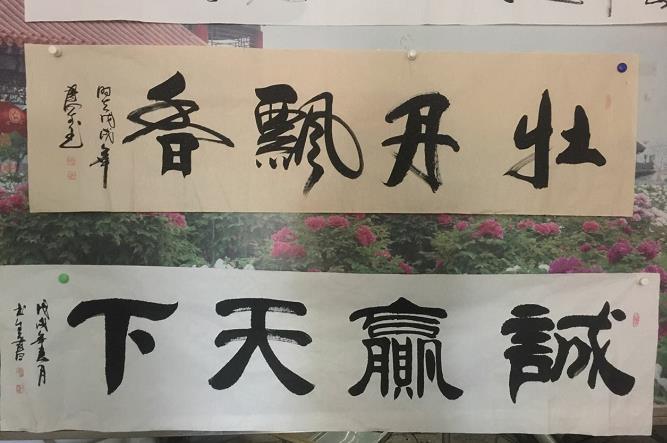 牡丹飄香
戊戌年
誠贏天下
戊戌年夏月